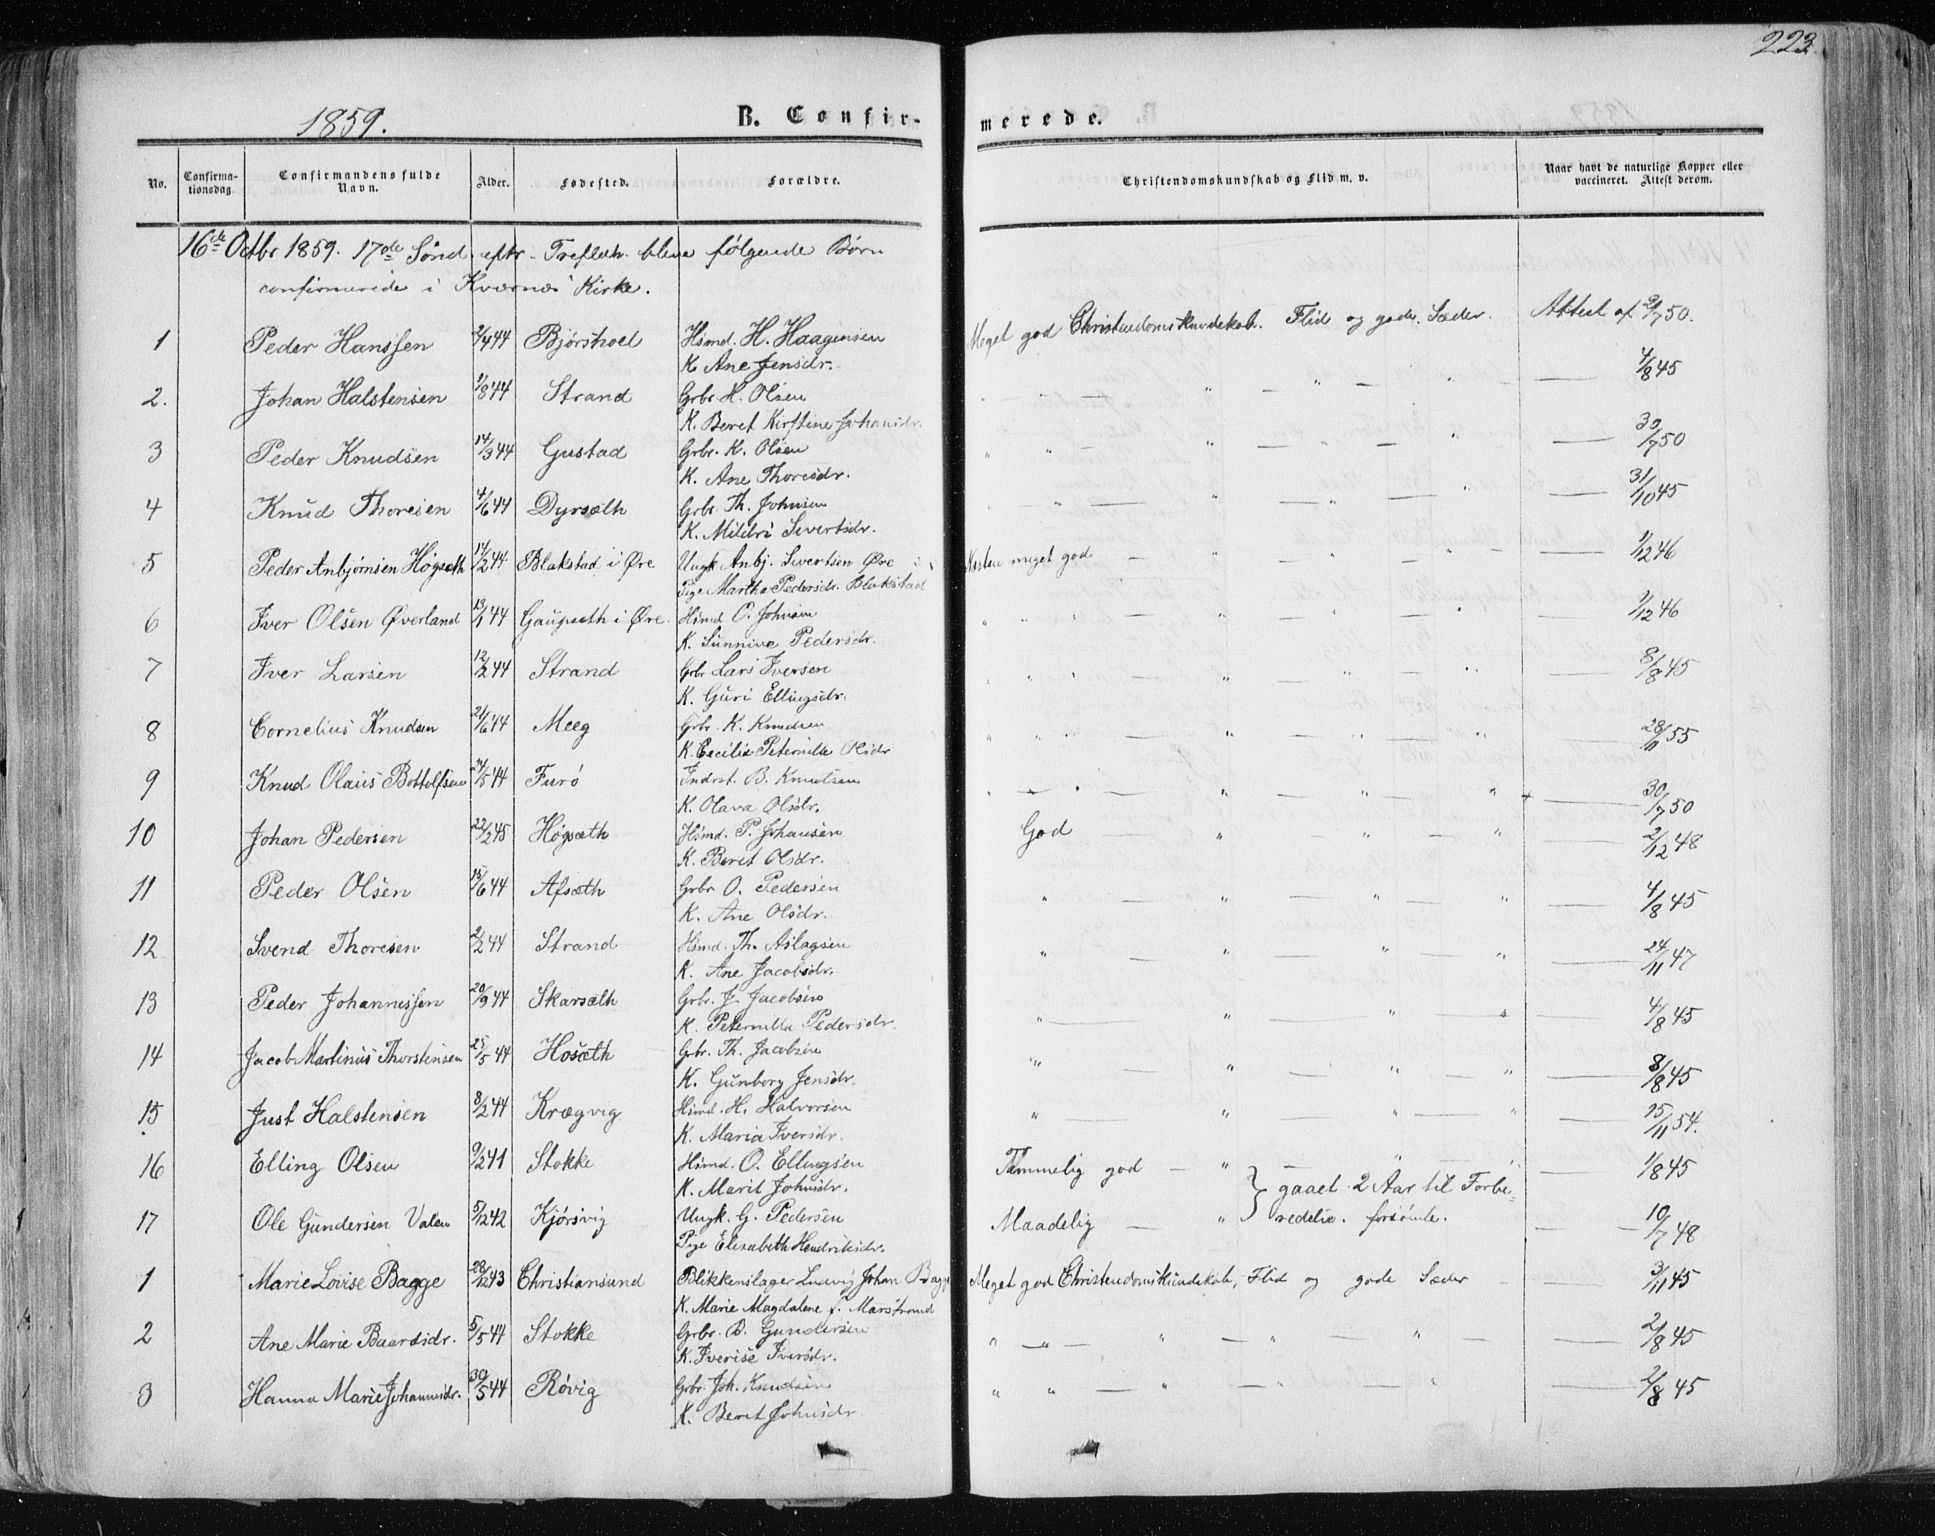 223.
1859. B. Confirmerede.
No. Confirmationsdag. Confirmandens fulde Navn. Alder. Fødested. Forældre. Christendomskundskab og Flid m. v. Naar havt de naturlige Kopper eller vaccineret. Attest derom.
16de Octbr 1859. 17de Sønd. eftr. Trefoldh. bleve følgende Børn
confirmerede i Kværnæs Kirke.
1 Peder Hanssen 2/4 44 Bjørshoel Hsmd. H. Haagensen Meget god Christendomskundskab. Flid og gode Sæder. Attest af 2/7 50.
K. Ane Jensdr.
2. Johan Halstensen 1/8 44 Strand Grbr. H. Olsen " — " — " — 4/8 45
K. Beret Kirstine Johansdr.
3 Peder Knudsen 14/3 44 Gustad Grbr. K. Olsen " " — " — " — " — 30/7 50
K. Ane Thoresdr.
4 Knud Thoresen 4/6 44 Dyrsæth Grbr. Th. Johnsen " — " — " — " — 31/10 45
K. Mildri Sivertsdr.
5 Peder Anbjørnsen Høgsæth 14/2 44 Blakstad i Øre Ungk. Anbj. Sivertsen Øre Næsten meget god — " — " — " — 1/12 46
Pige Martha Pedersdr. Blakstad
6 Iver Olsen Øverland 13/1 44 Gaupsæth i Øre. Hsmd O. Johnsen " " " " — " — " — 1/12 46
K. Sunnive Pedersdr.
7 Iver Larsen 12/2 44 Strand Grbr Lars Iversen " " " — " — " — " — 8/8 45
K. Guri Ellingsdr.
8 Cornelius Knudsen 21/6 44 Meeg Grbr. K. Knudsen " " " — " — " — " — 28/11 55
K. Cecilia Peternille Olsdr
9 Knud Olaus Bottolfsen 24/5 44 Furø Indrst. B. Knudsen " — " — " — " — " — 30/7 50
K. Olava Olsdr.
10 Johan Pedersen 22/2 45 Høgsæth Hsmd. P. Johansen God " — " — " — 2/12 48
K. Beret Olsdr.
11 Peder Olsen 15/6 44 Afsæth Grbr O. Pedersen " — " — " — " — 4/8 45
K. Ane Olsdr.
12 Svend Thoresen 2/2 44 Strand Hsmd. Th. Aslagsen " — " — " — " — 24/11 47
K. Ane Jacobsdr.
13 Peder Johannessen 20/9 44 Skarsæth Grbr. J. Jacobsen " — " — " — " — 4/8 45
K. Peternilla Pedersdr.
14 Jacob Martinus Thorstensen 25/5 44 Hosæth Grbr. Th. Jacobsen " — " — " — " — 8/8 45
K. Gunborg Jensdr.
15 Just Halstensen 8/2 44 Krægvig Hsmd. H. Halvorsen " — " — " — " — 15/11 54.
K. Maria Iversdr.
16 Elling Olsen 9/2 41 Stokke Hsmd. O. Ellingsen Temmelig god — " — " — " — 1/8 45
K. Marit Johnsdr. } gaaet 2 Aar til Forbe-
17 Ole Gundersen Valen 5/12 42 Kjørsvig Ungk. G. Pedersen Maadelig — " redelse. forsømte. — 10/7 48
Pige Elisabeth Hendriksdr.
1 Marie Lovise Bagge 28/12 43 Christiansund Blikkenslager Ludvig Johan Bagge Meget god Christendomskundskab, Flid og gode Sæder — 3/11 45
K. Marie Magdalene f. Marstrand
2 Ane Marie Baardsdr. 5/5 44 Stokke Grbr. B. Gundersen " — " — " — " — " — 2/8 45
K. Iverise Iversdr.
3 Hanna Marie Johannisdr. 30/5 44 Røvig Grbr. Joh. Knudsen " " — " — " — " — 2/8 45
K. Beret Johnsdr